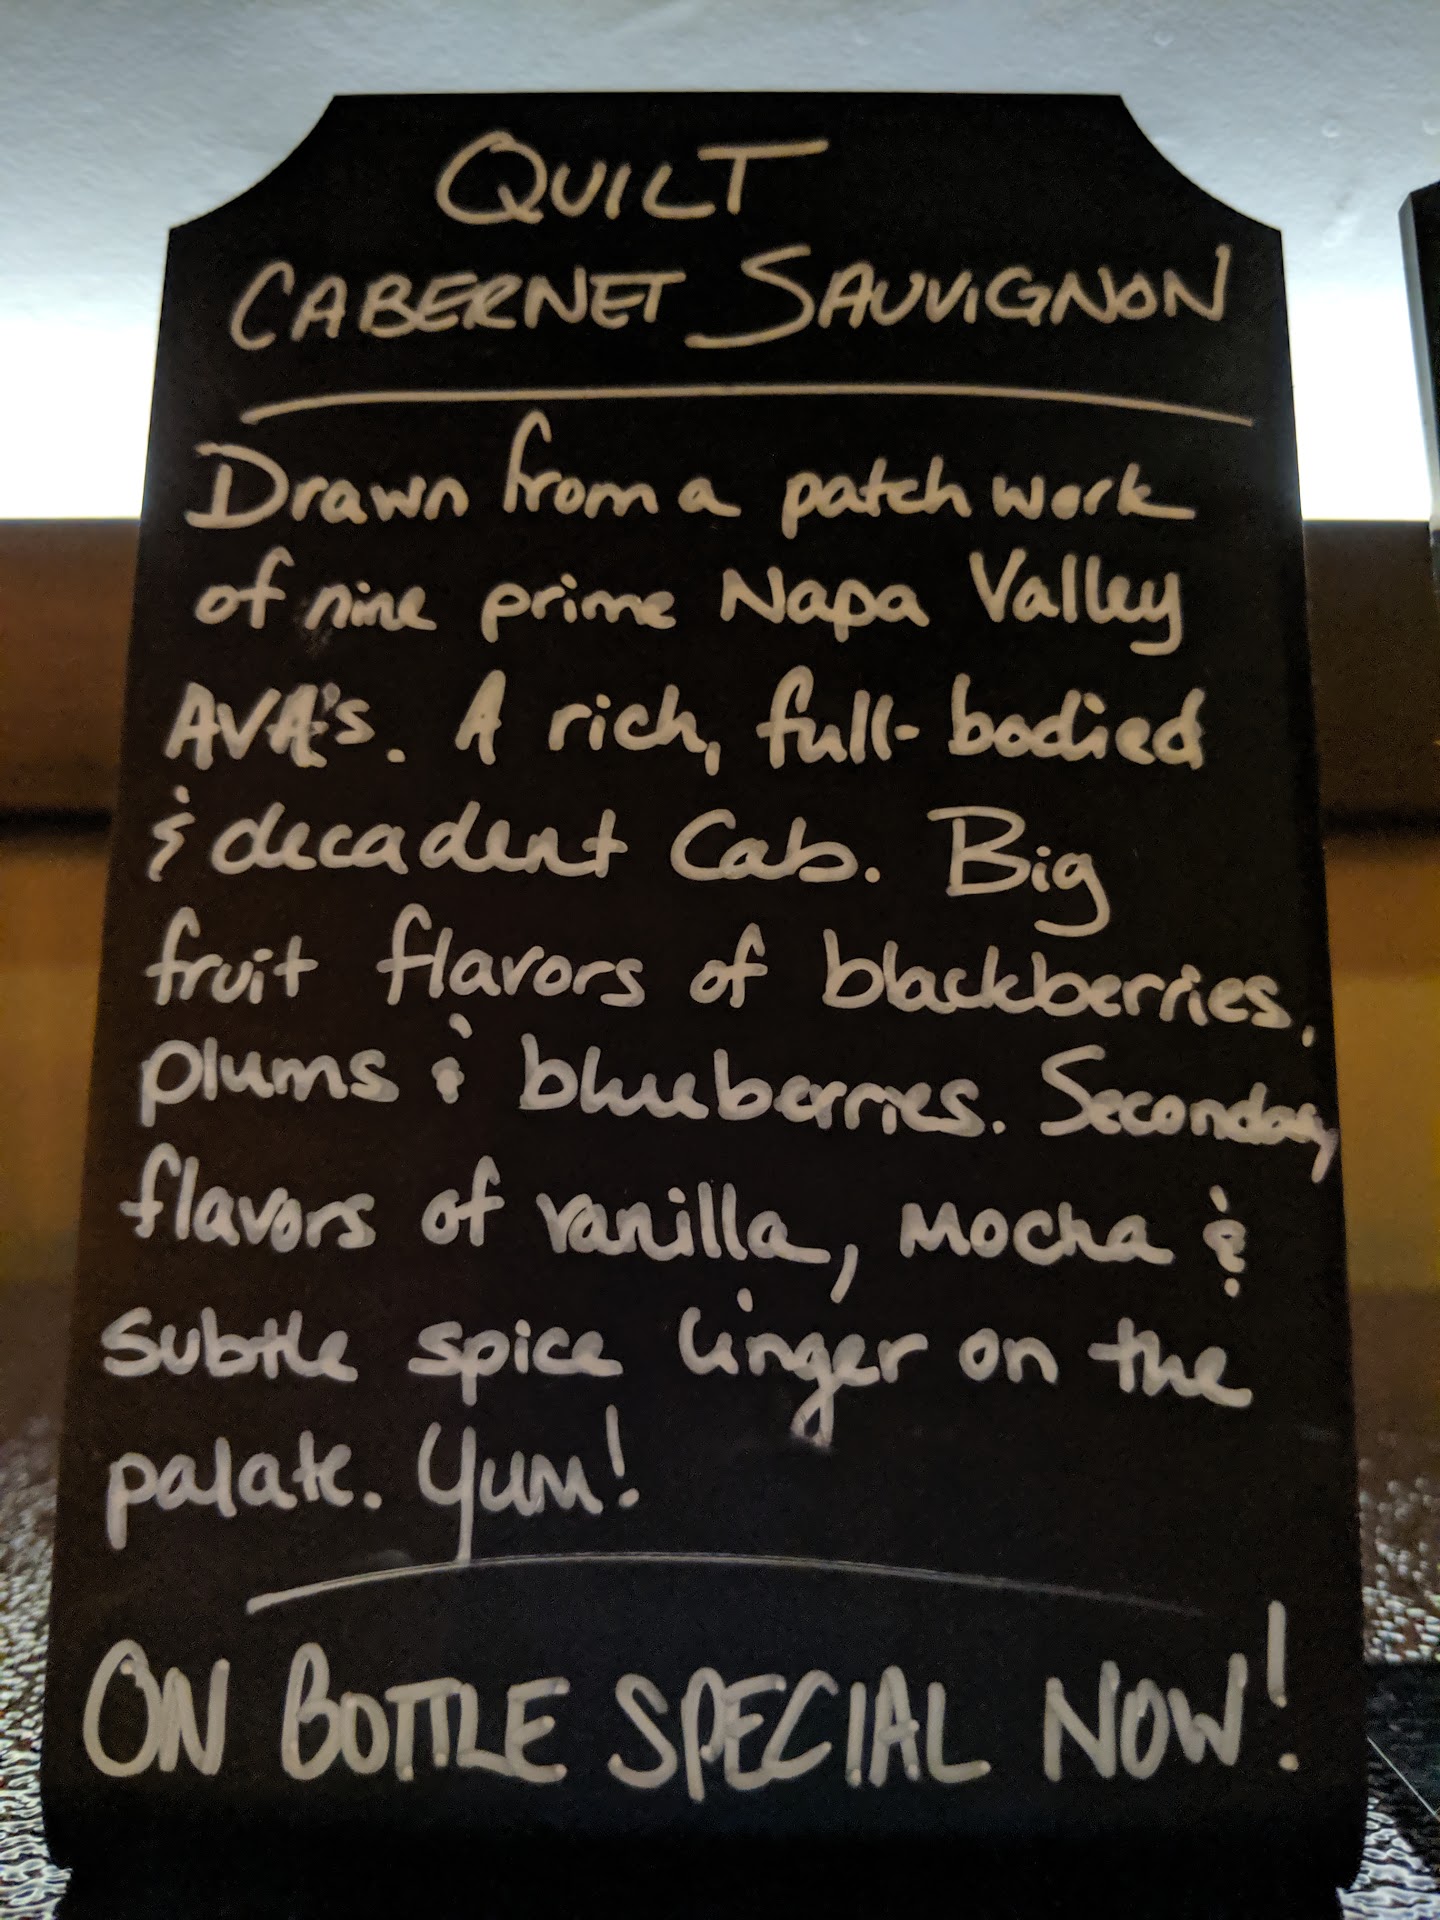 QUILT
CABERNET SAUVIGNON
Drawn from a patch work
of nine prime Napa Valley
AVA's. A rich, full-bodied
& decadent Cab. Big
fruit flavors of blackberries,
plums & blueberries. Secondary
flavors of vanilla, Mocha &
subtle spice linger on the
palate. Yum!
ON BOTTLE SPECIAL NOW!